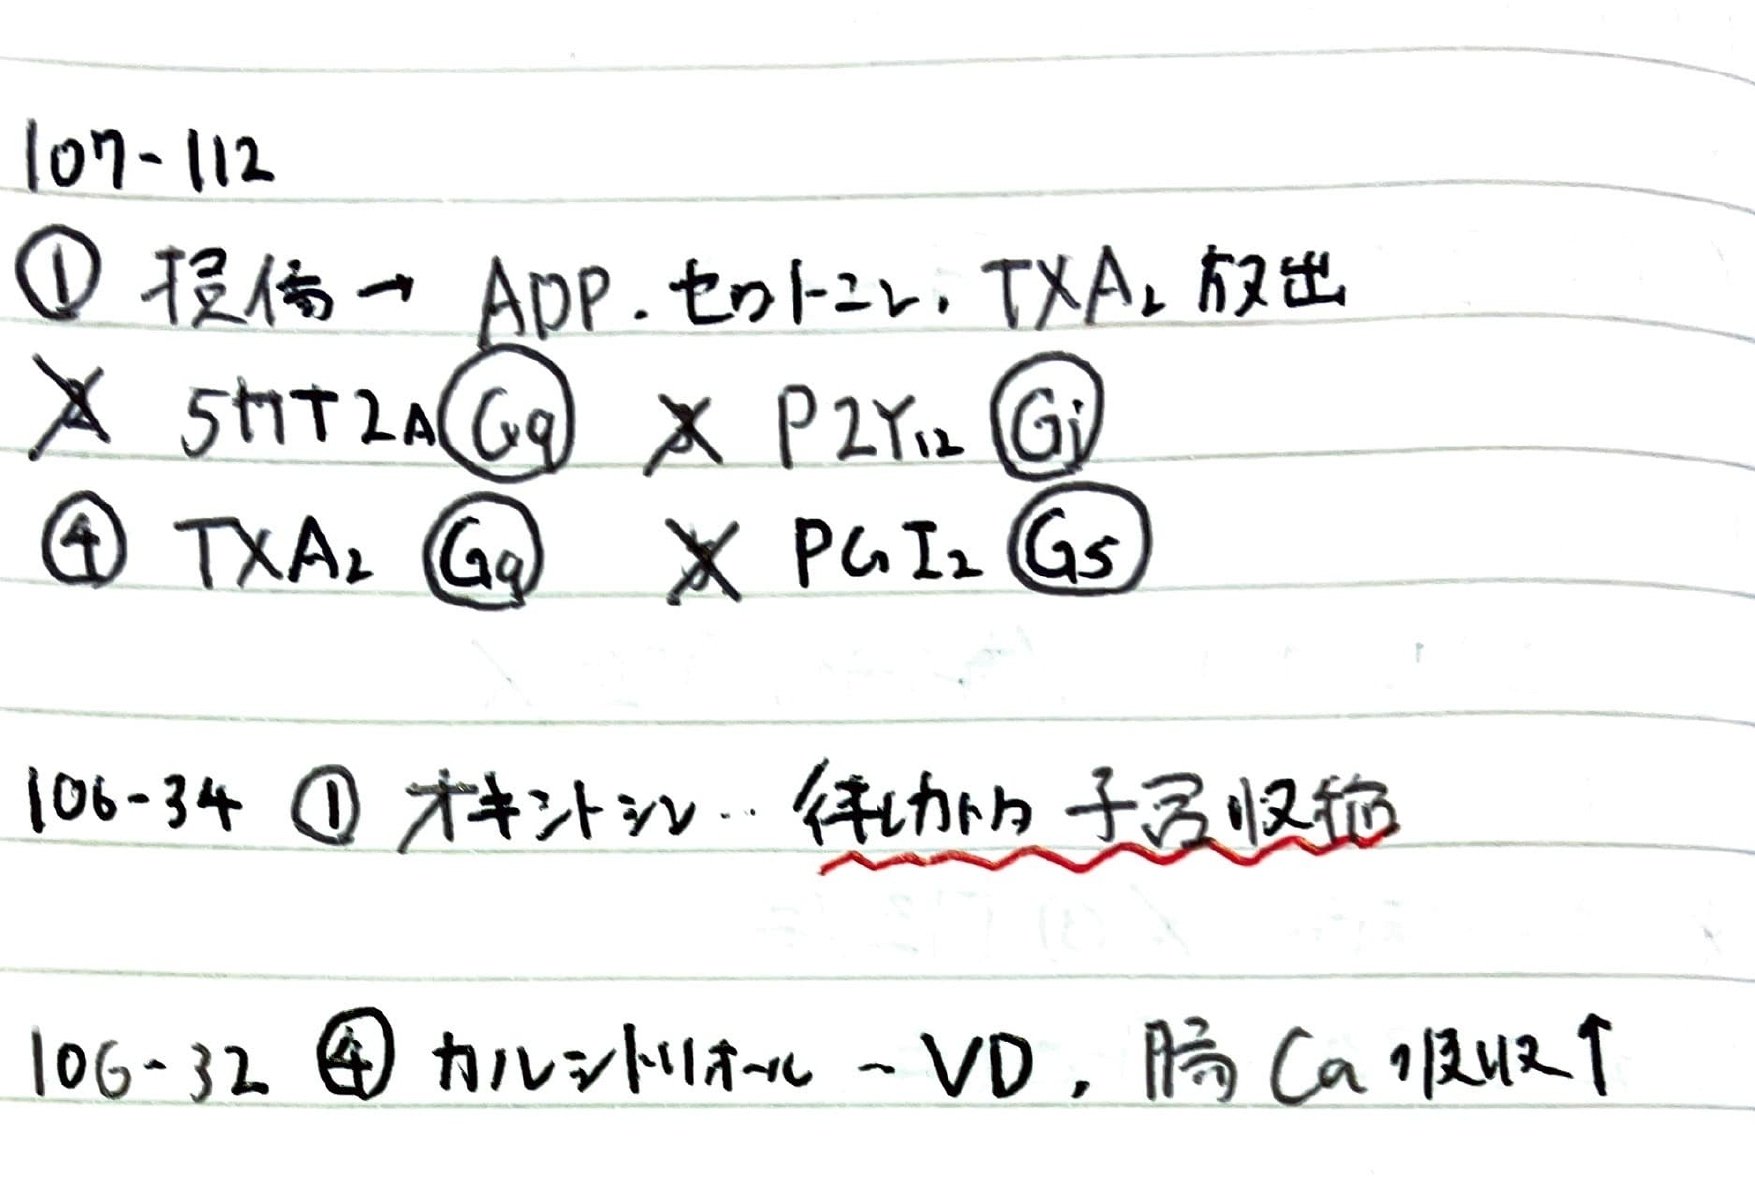 107-112
① 損傷→ ADP.セロトニン, TXA₂ 放出
2 5HT2A Gq 3 P2Y₁₂ Gi
④ TXA₂ Gq 5 PGI₂ Gs
106-34 ① オキシトシン‥ 律動的 子宮収縮
106-32 ④ カルシトリオール - VD, 腸 Ca 吸収↑